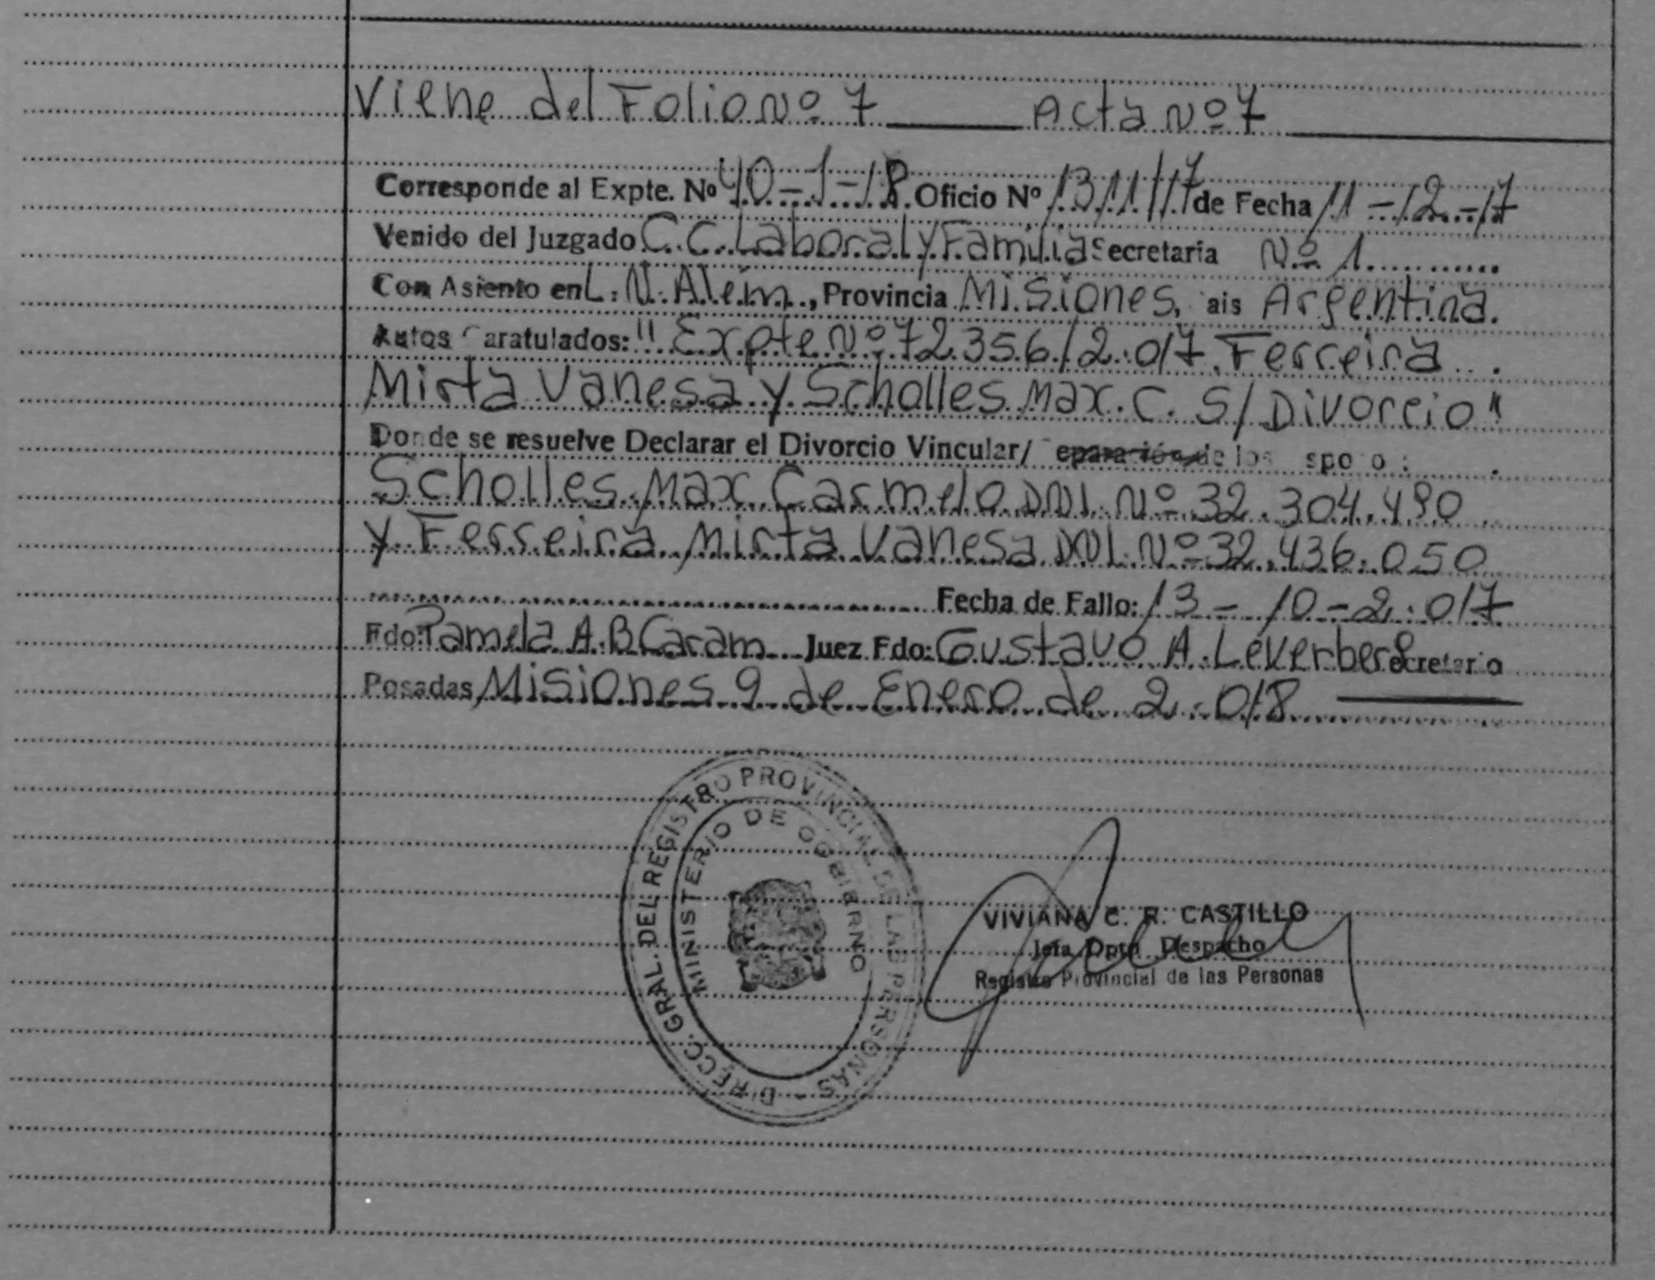 Viene del Folio Nº 7 Acta Nº 7
Corresponde al Expte. Nº 40-1-18 Oficio Nº 1311/17 de Fecha 11-12-17
Venido del Juzgado C.C. Laboral y Familia Secretaria Nº 1
Con Asiento en L. N. Alem, Provincia Misiones, ais Argentina.
Autos Caratulados: "Expte Nº 72.356/2.017 Ferreira
Mirta Vanesa y Scholles Max. C. S/ Divorcio"
Donde se resuelve Declarar el Divorcio Vincular/ eparación de los spo o :
Scholles, Max Carmelo DNI. Nº 32.304.490
y Ferreira, Mirta Vanesa DNI. Nº 32.436.050
Fecha de Fallo: 13-10-2.017
Fdo: Pamela A. B Caram Juez Fdo: Gustavo A. Leverberg Secretario
Posadas, Misiones 9 de Enero de 2.018
DIRECC. GRAL. DEL REGISTRO PROVINCIAL DE LAS PERSONAS
MINISTERIO DE GOBIERNO
VIVIANA C. R. CASTILLO
Jefa Dpto. Despacho
Registro Provincial de las Personas